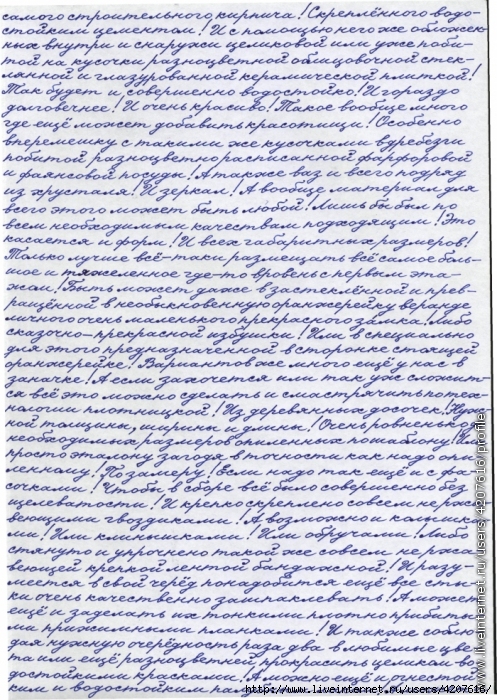 самого строительного кирпича! Скреплённого водо-
стойким цементом! И с помощью него же обложен-
ных внутри и снаружи целиковой или уже поби-
той на кусочки разноцветной облицовочной стек-
лянной и глазурованной керамической плиткой!
Так будет и совершенно водостойко! И гораздо
долговечнее! И очень красиво! Такое вообще много
где ещё может добавить красотищи! Особенно
вперемешку с такими же кусочками вдребезги
побитой разноцветно расписанной фарфоровой
и фаянсовой посуды! А также ваз и всего подряд
из хрусталя! И зеркал! А вообще материал для
всего этого может быть любой! Лишь бы был по
всем необходимым качествам подходящим! Это
касается и форм! И всех габаритных размеров!
Только лучше всё-таки размещать всё самое боль-
шое и тяжеленное где-то вровень с первым эта-
жом! Быть может даже в застеклённой и прев-
ращённой в необыкновенную оранжерейку веранде
личного очень маленького прекрасного замка! Либо
сказочно-прекрасной избушки! Или в специально
для этого предназначенной в сторонке стоящей
оранжерейке! Вариантов же много ещё у нас в
заначке! А если захочется или так уж сложит-
ся всё это можно сделать и смастрячить по тех-
нологии плотницкой! Из деревянных досочек! Нуж-
ной толщины, ширины и длины! Очень ровненько до
необходимых размеров опиленных по шаблону! Или
просто эталону загодя в точности как надо опи-
ленному! По замеру! Если надо так ещё и с фа-
сочками! Чтобы в сборе всё было совершенно без
щелеватости! И крепко скреплено совсем не ржа-
веющими гвоздиками! А возможно колышка-
ми! Или клинышками! Или обручами! Либо
стянуто и упрочнено такой же совсем не ржа-
веющей крепкой лентой бандажной! И разу-
меется в свой черёд понадобится ещё все сты-
ки очень качественно зашпаклевать! А может
ещё и заделать их тонкими плотно прибиты-
ми прижимными планками! И также соблю-
дя нужную очерёдность раза два в любимые цве-
та или ещё разноцветней прокрасить целиком во-
достойкими красками! А можно ещё и очистойкими
http://www.liveinternet.ru/users/4207616/profile/
http://www.liveinternet.ru/users/4207616/